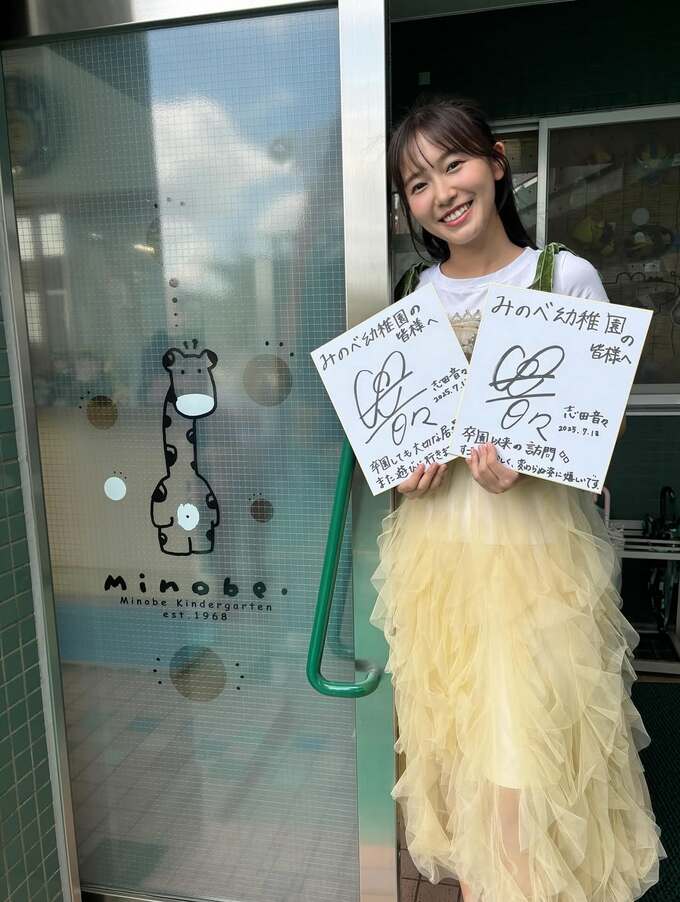 Minobe.
Minobe Kindergarten
est.1968
みのべ幼稚園の
皆様へ
音々
志田音々
2025.7.1
卒園しても大切な居
また遊びに行きま
みのべ幼稚園の
皆様へ
音々
志田音々
2025.7.18
卒園以来の訪問
しく、変わらぬ姿に嬉しいです。